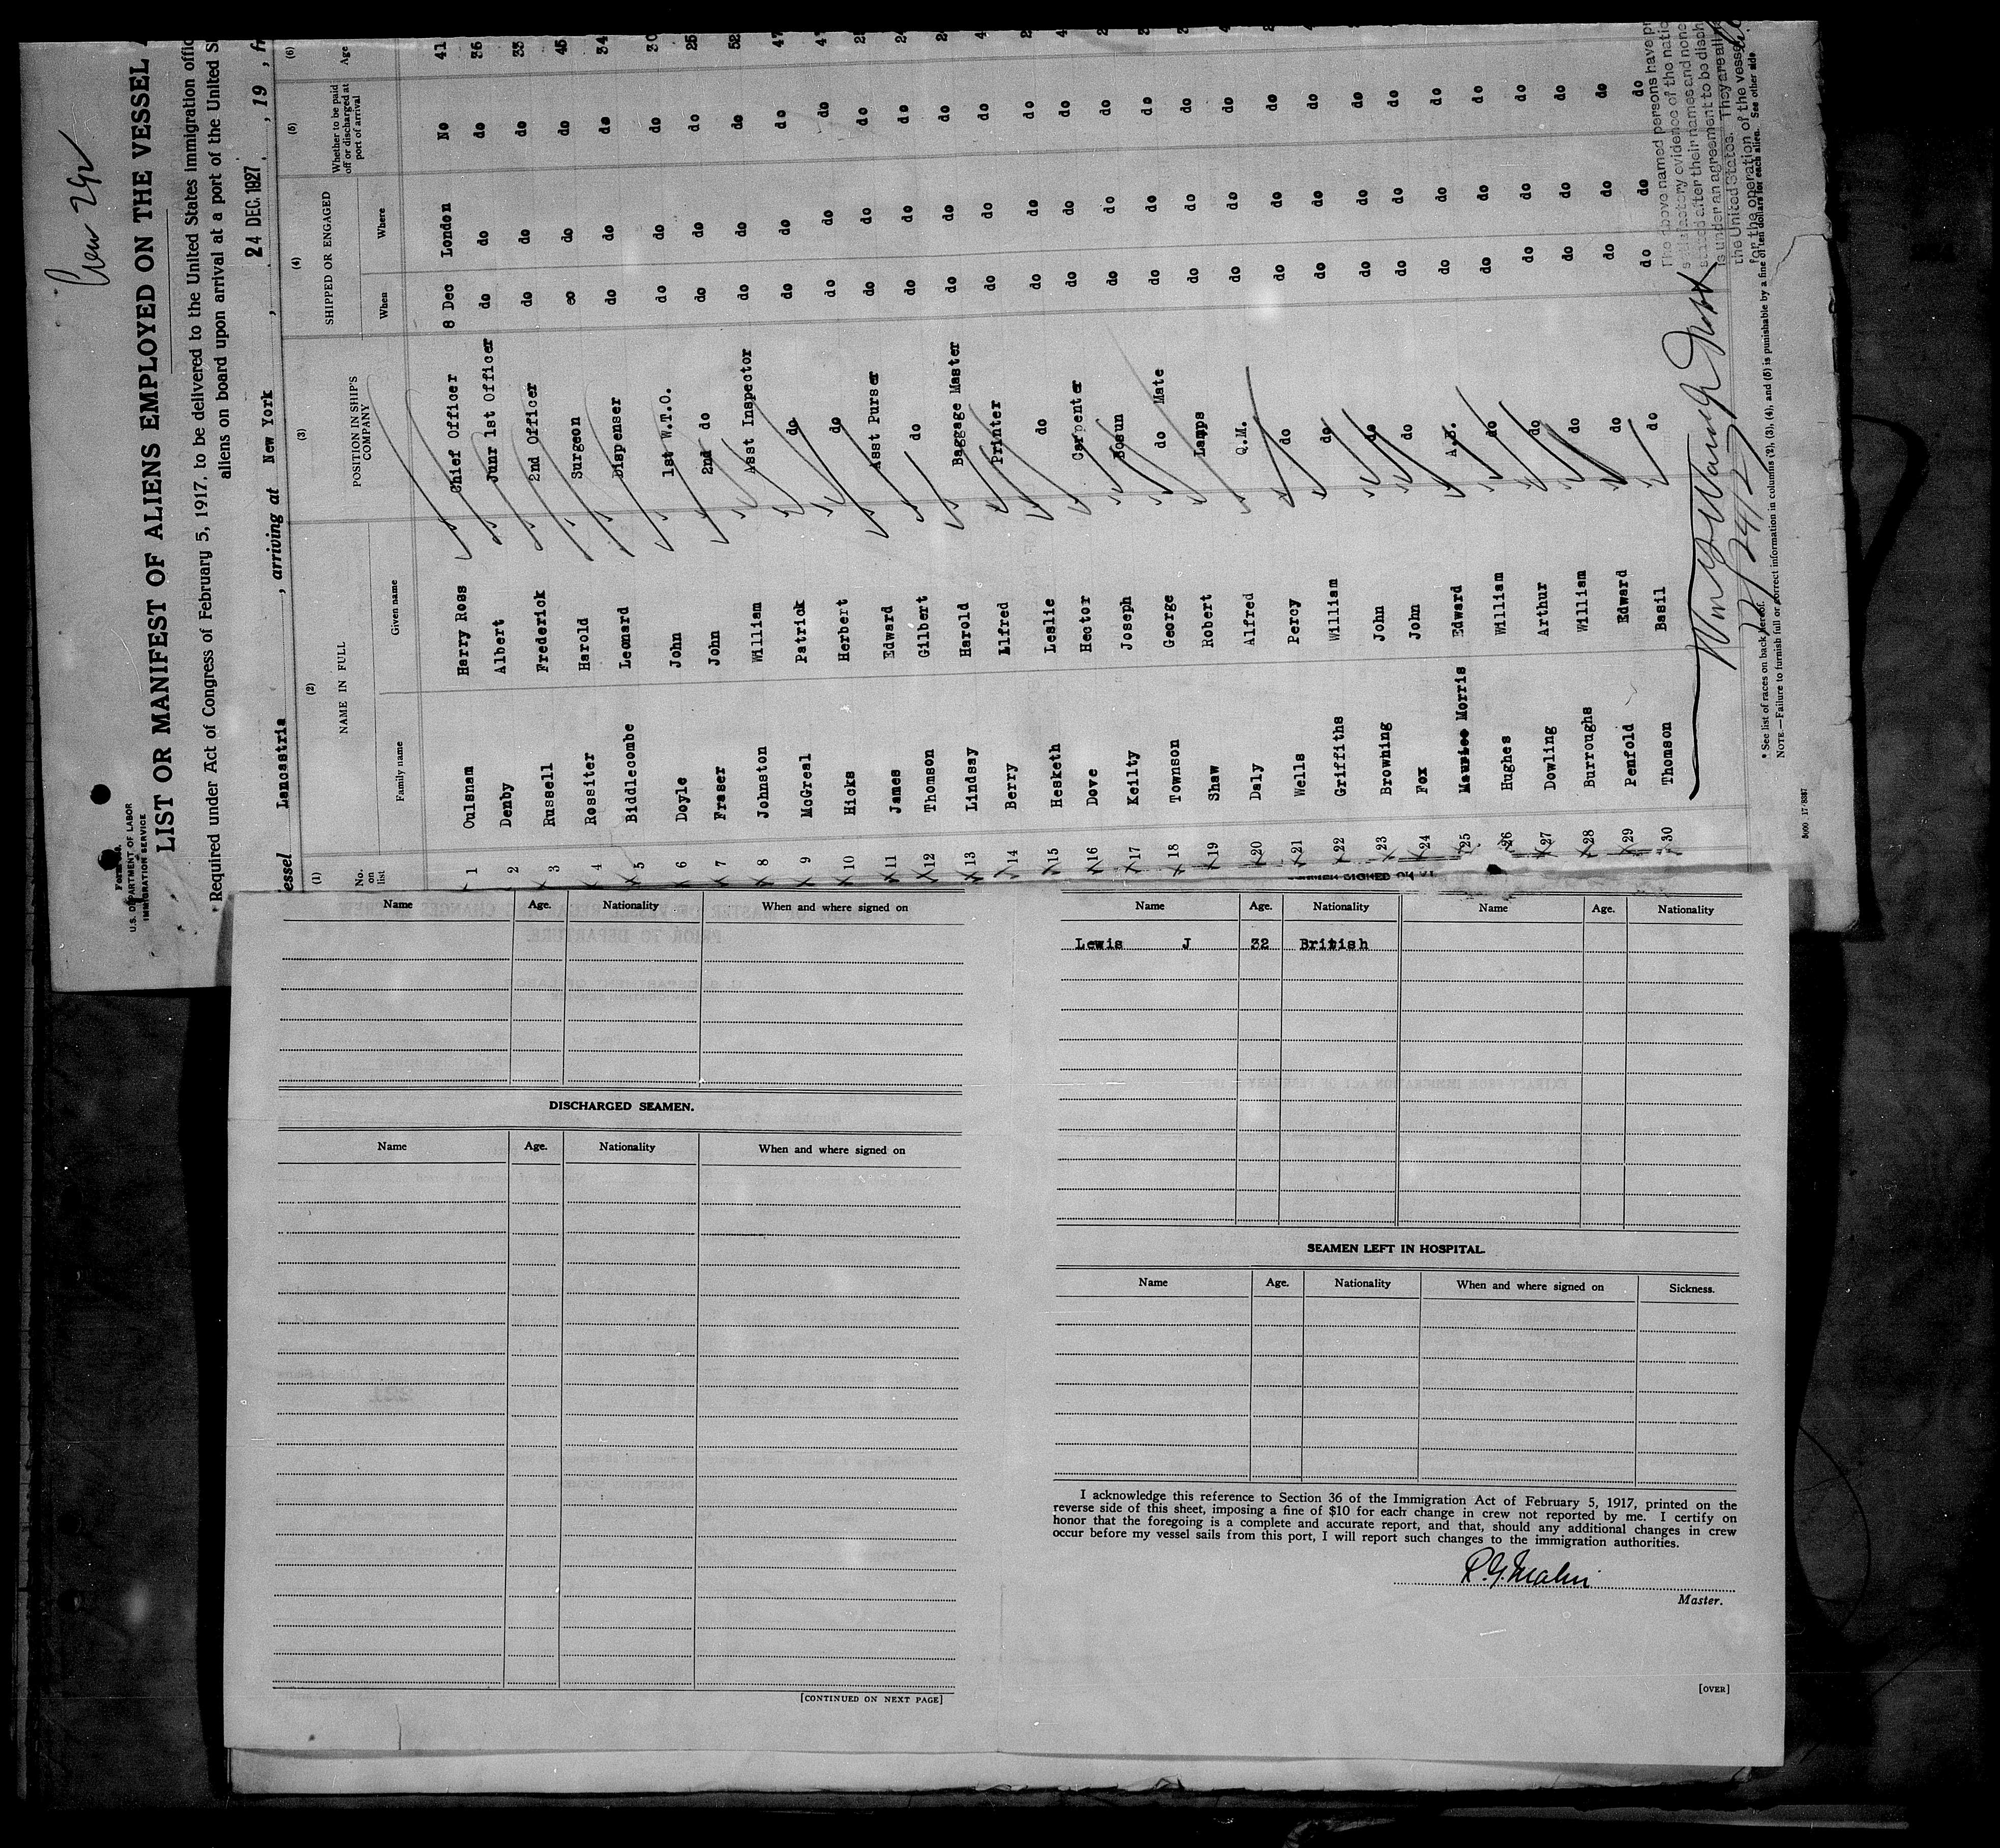 Crew 292
U.S. DEPARTMENT OF LABOR
IMMIGRATION SERVICE
LIST OR MANIFEST OF ALIENS EMPLOYED ON THE VESSEL
Required under Act of Congress of February 5, 1917, to be delivered to the United States immigration
aliens on board upon arrival at a port of the United
essel Lancastria, arriving at New York, 24 DEC. 1927, 19
(1) (2) (3) (4) (5) (6)
No. on list NAME IN FULL POSITION IN SHIP'S COMPANY SHIPPED OR ENGAGED Whether to be paid off or discharged at port of arrival Age
Family name Given name When Where
1 Oulsnam Harry Ross Chief Officer 8 Dec London No 41
2 Denby Albert Junr 1st Officer do do do 35
3 Russell Frederick 2nd Officer do do do 33
4 Rossiter Harold Surgeon do do do 45
5 Biddlecombe Leonard Dispenser do do do 34
6 Doyle John 1st W.T.O. do do do 30
7 Fraser John 2nd do do do do 25
8 Johnston William Asst Inspector do do do 52
9 McGreal Patrick do do do do
10 Hicks Herbert do do do do
11 James Edward Asst Purser do do do
12 Thomson Gilbert do do do do
13 Lindsay Harold Baggage Master do do do
14 Berry Alfred Printer do do do
15 Hesketh Leslie do do do do
16 Dove Hector Carpenter do do do
17 Keilty Joseph Bosun do do do
18 Townson George do Mate do do do
19 Shaw Robert Lamps do do do
20 Daly Alfred Q.M. do do do
21 Wells Percy do do do do
22 Griffiths William do do do do
23 Browning John do do do do
24 Fox John do do do do
25 Morris Edward A.B. do do do
26 Hughes William do do do do
27 Dowling Arthur do do do do
28 Burroughs William do do do do
29 Penfold Edward do do do do
30 Thomson Basil do do do do
The above named persons have
satisfactory evidence of the
stated after their names and none
is under an agreement to be
the United States. They are all
for the operation of the vessel
* See list of races on back hereof. See other side
NOTE.—Failure to furnish full or correct information in columns (2), (3), (4), and (5) is punishable by a fine of ten dollars for each alien.
Name Age. Nationality When and where signed on
DISCHARGED SEAMEN.
Name Age. Nationality When and where signed on
[CONTINUED ON NEXT PAGE]
SEAMEN SIGNED ON
Name Age. Nationality Name Age. Nationality
Lewis J 32 British
SEAMEN LEFT IN HOSPITAL.
Name Age. Nationality When and where signed on Sickness.
I acknowledge this reference to Section 36 of the Immigration Act of February 5, 1917, printed on the
reverse side of this sheet, imposing a fine of $10 for each change in crew not reported by me. I certify on
honor that the foregoing is a complete and accurate report, and that, should any additional changes in crew
occur before my vessel sails from this port, I will report such changes to the immigration authorities.
R. G. Malin
Master.
[OVER]